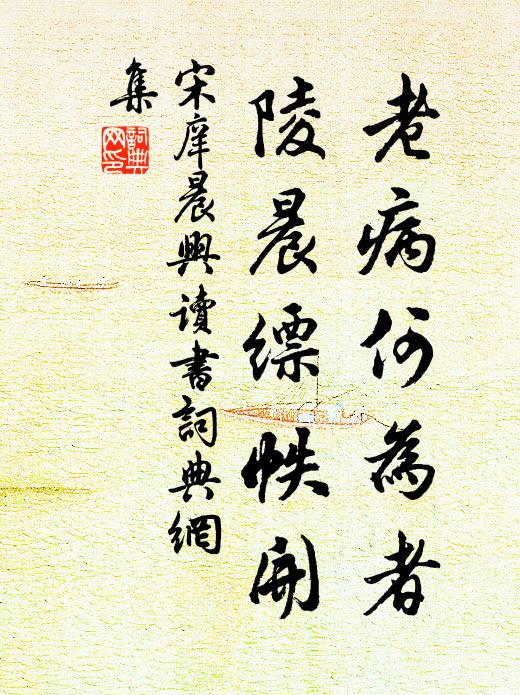 老病何為者
陵晨縹帙開
宋庠晨興讀書詞典網
集
詞典
网印